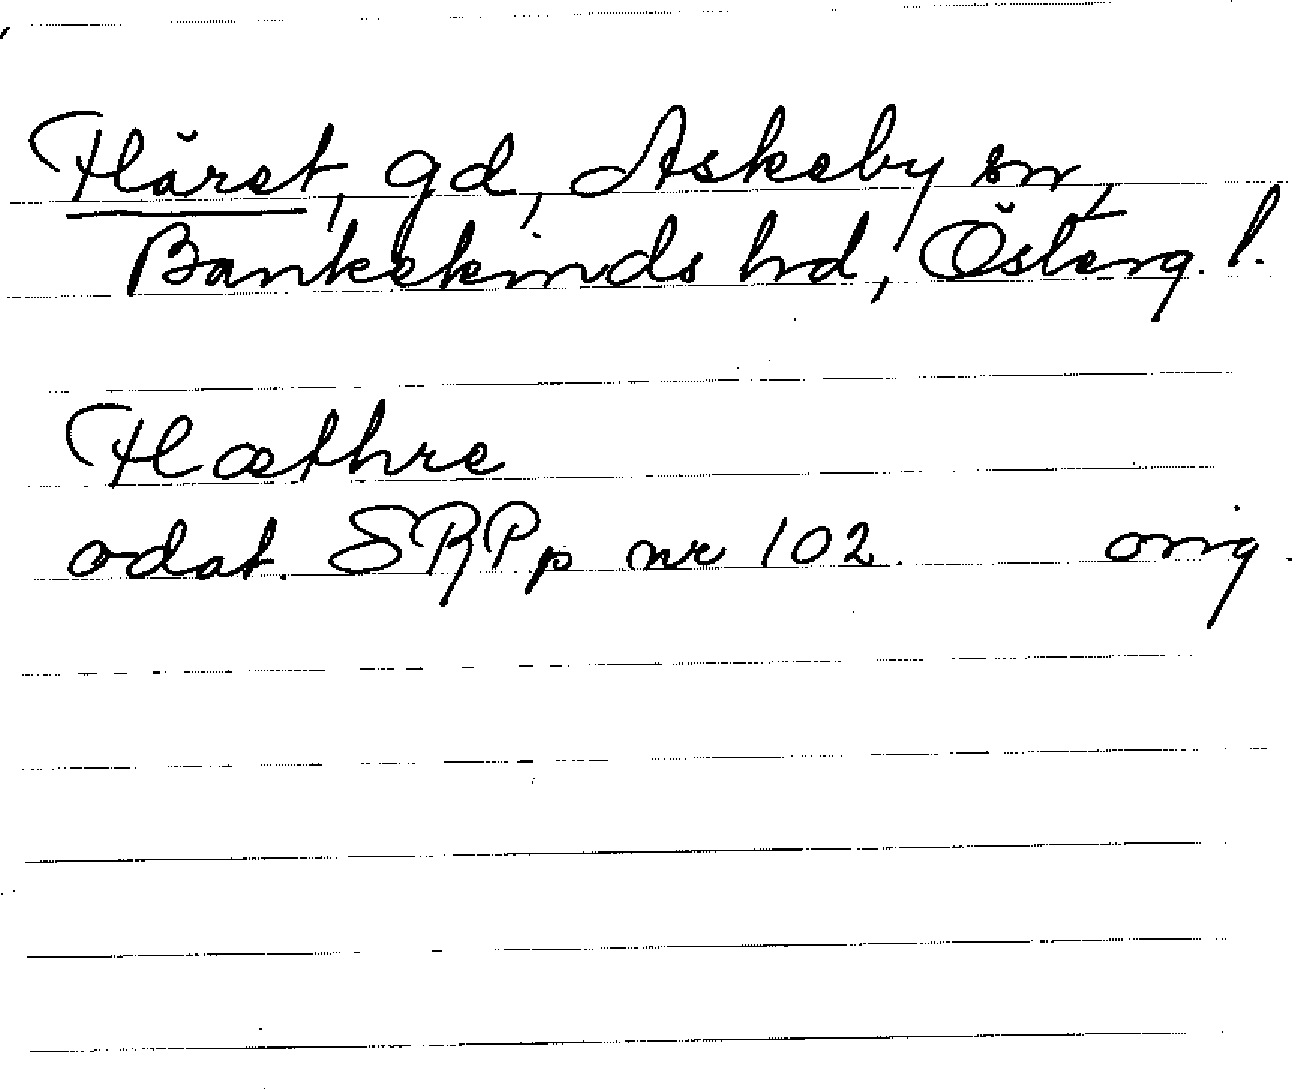 Häret, gd, Askeby sn,
Bankekinds hd, Österg. l.
Hæthre
odat. SRPp nr 102. orig.